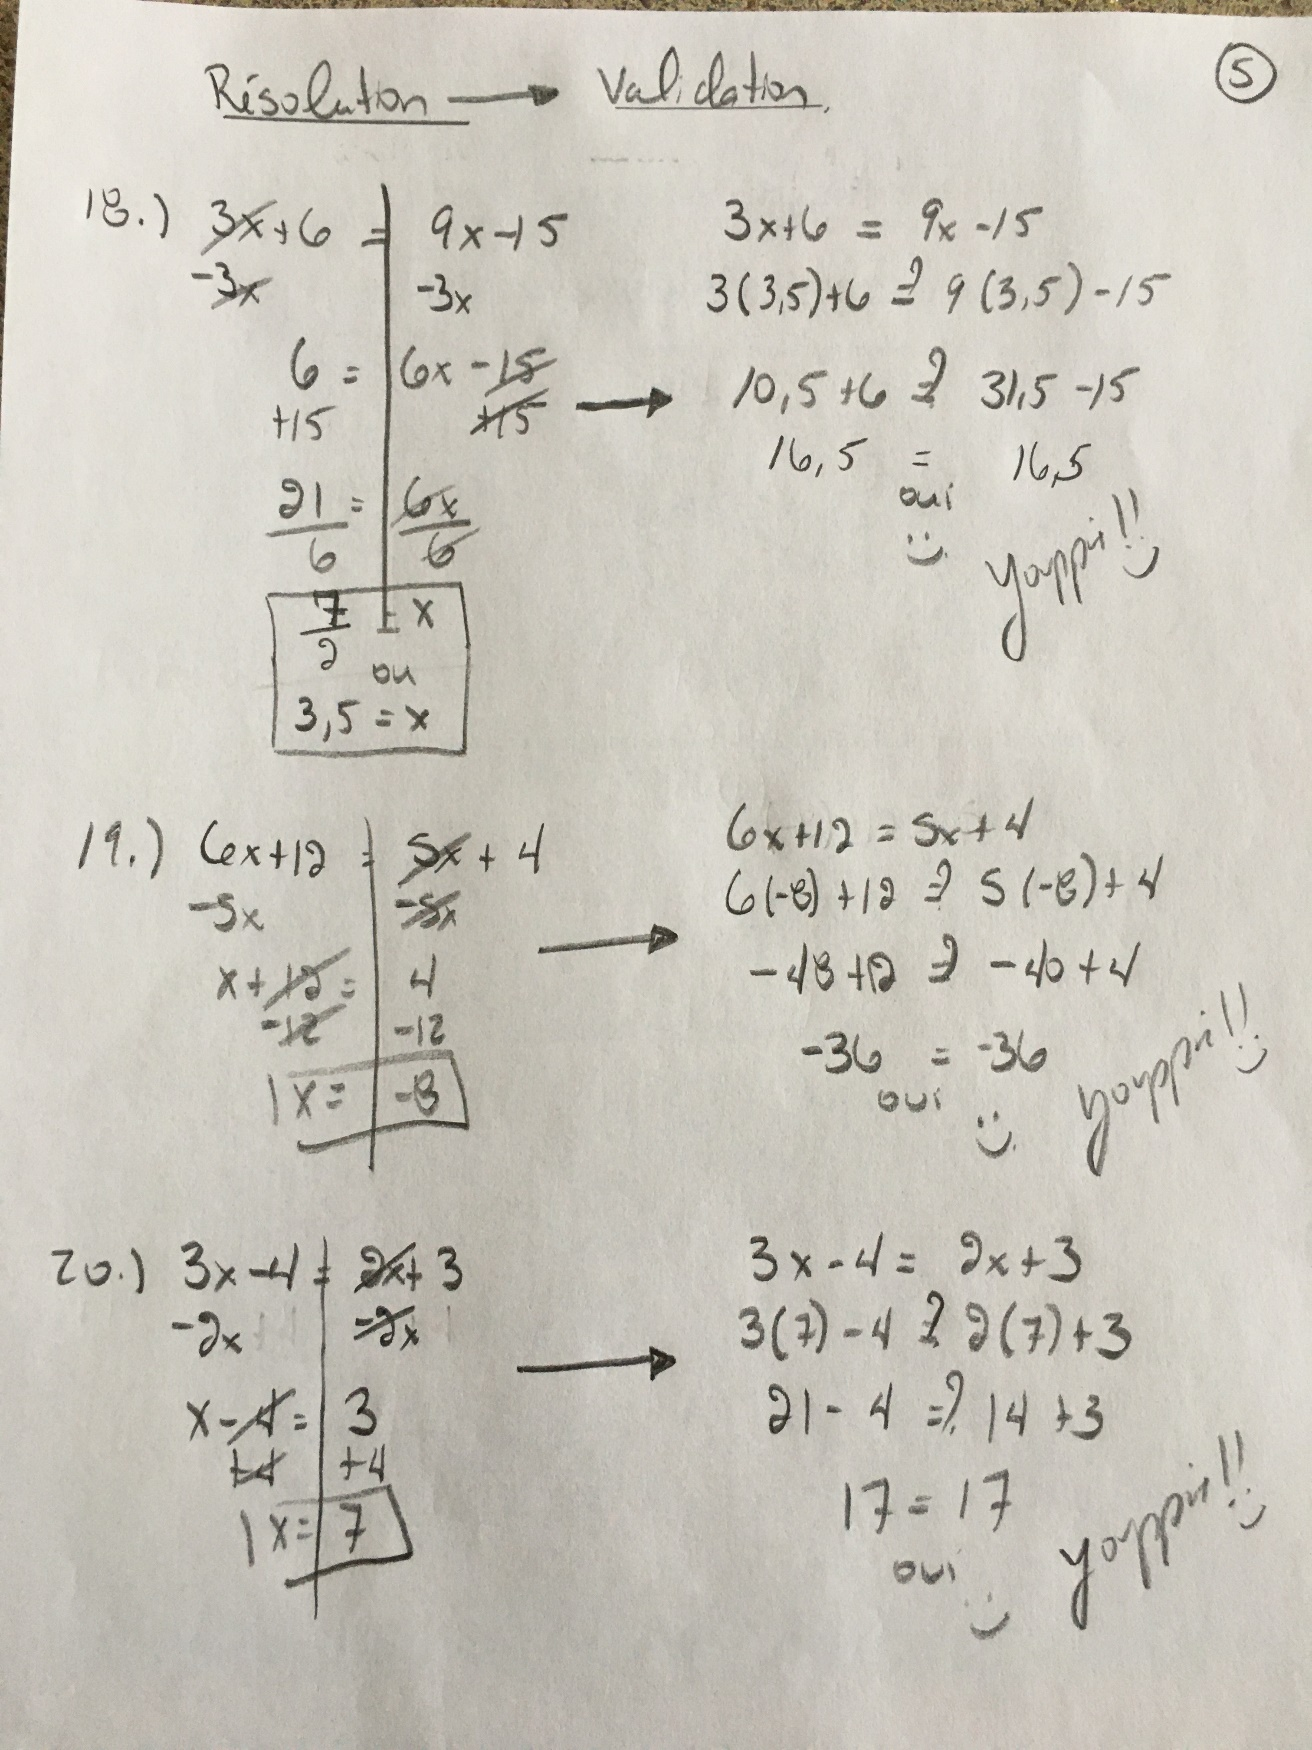 Résolution → Validation.
5
18.) 3x+6 = 9x-15
-3x -3x
6 = 6x-15
+15 +15
21/6 = 6x/6
7/2 = x
ou
3,5 = x
→
3x+6 = 9x-15
3(3,5)+6 ?= 9(3,5)-15
10,5+6 ?= 31,5-15
16,5 = 16,5
oui
:)
Yayppii!! :)
19.) 6x+12 = 5x+4
-5x -5x
x+12 = 4
-12 -12
1x = -8
→
6x+12 = 5x+4
6(-8)+12 ?= 5(-8)+4
-48+12 ?= -40+4
-36 = -36
oui
:)
20.) 3x-4 = 2x+3
-2x -2x
x-4 = 3
+4 +4
1x = 7
→
3x-4 = 2x+3
3(7)-4 ?= 2(7)+3
21-4 =? 14+3
17 = 17
oui
:)